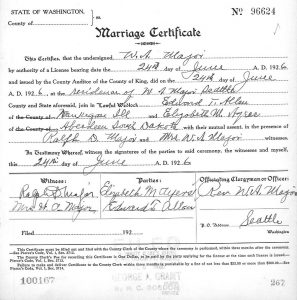 STATE OF WASHINGTON,
County of
ss.
No 96624
Marriage Certificate
This Certifies, that the undersigned W. A. Major
by authority of a License bearing date the 24th day of June A. D. 1926
and issued by the County Auditor of the County of King, did on the 24th day of June
A. D. 1926, at the Residence of W A Major Seattle
County and State aforesaid, join in Lawful Wedlock Edward T. Allen
of the County of Waukegan Ill and Elizabeth M. Ayres
of the County of Aberdeen South Dakota with their mutual assent, in the presence of
Ralph D. Major and Mrs W. A. Major witnesses.
In Testimony Whereof, witness the signatures of the parties to said ceremony, the witnesses and myself,
this 24th day of June A. D. 1926
Witness: Parties: Officiating Clergyman or Officer:
Ralph D. Major Elizabeth M Ayres Rev. W A Major
Mrs W. A. Major Edward T. Allen
P. O. Address Seattle
Filed 192 Washington
This Certificate must be filled out and filed with the County Clerk of the County where the ceremony is performed, within three months after the ceremony.—See
100167 GEORGE A. GRANT 267